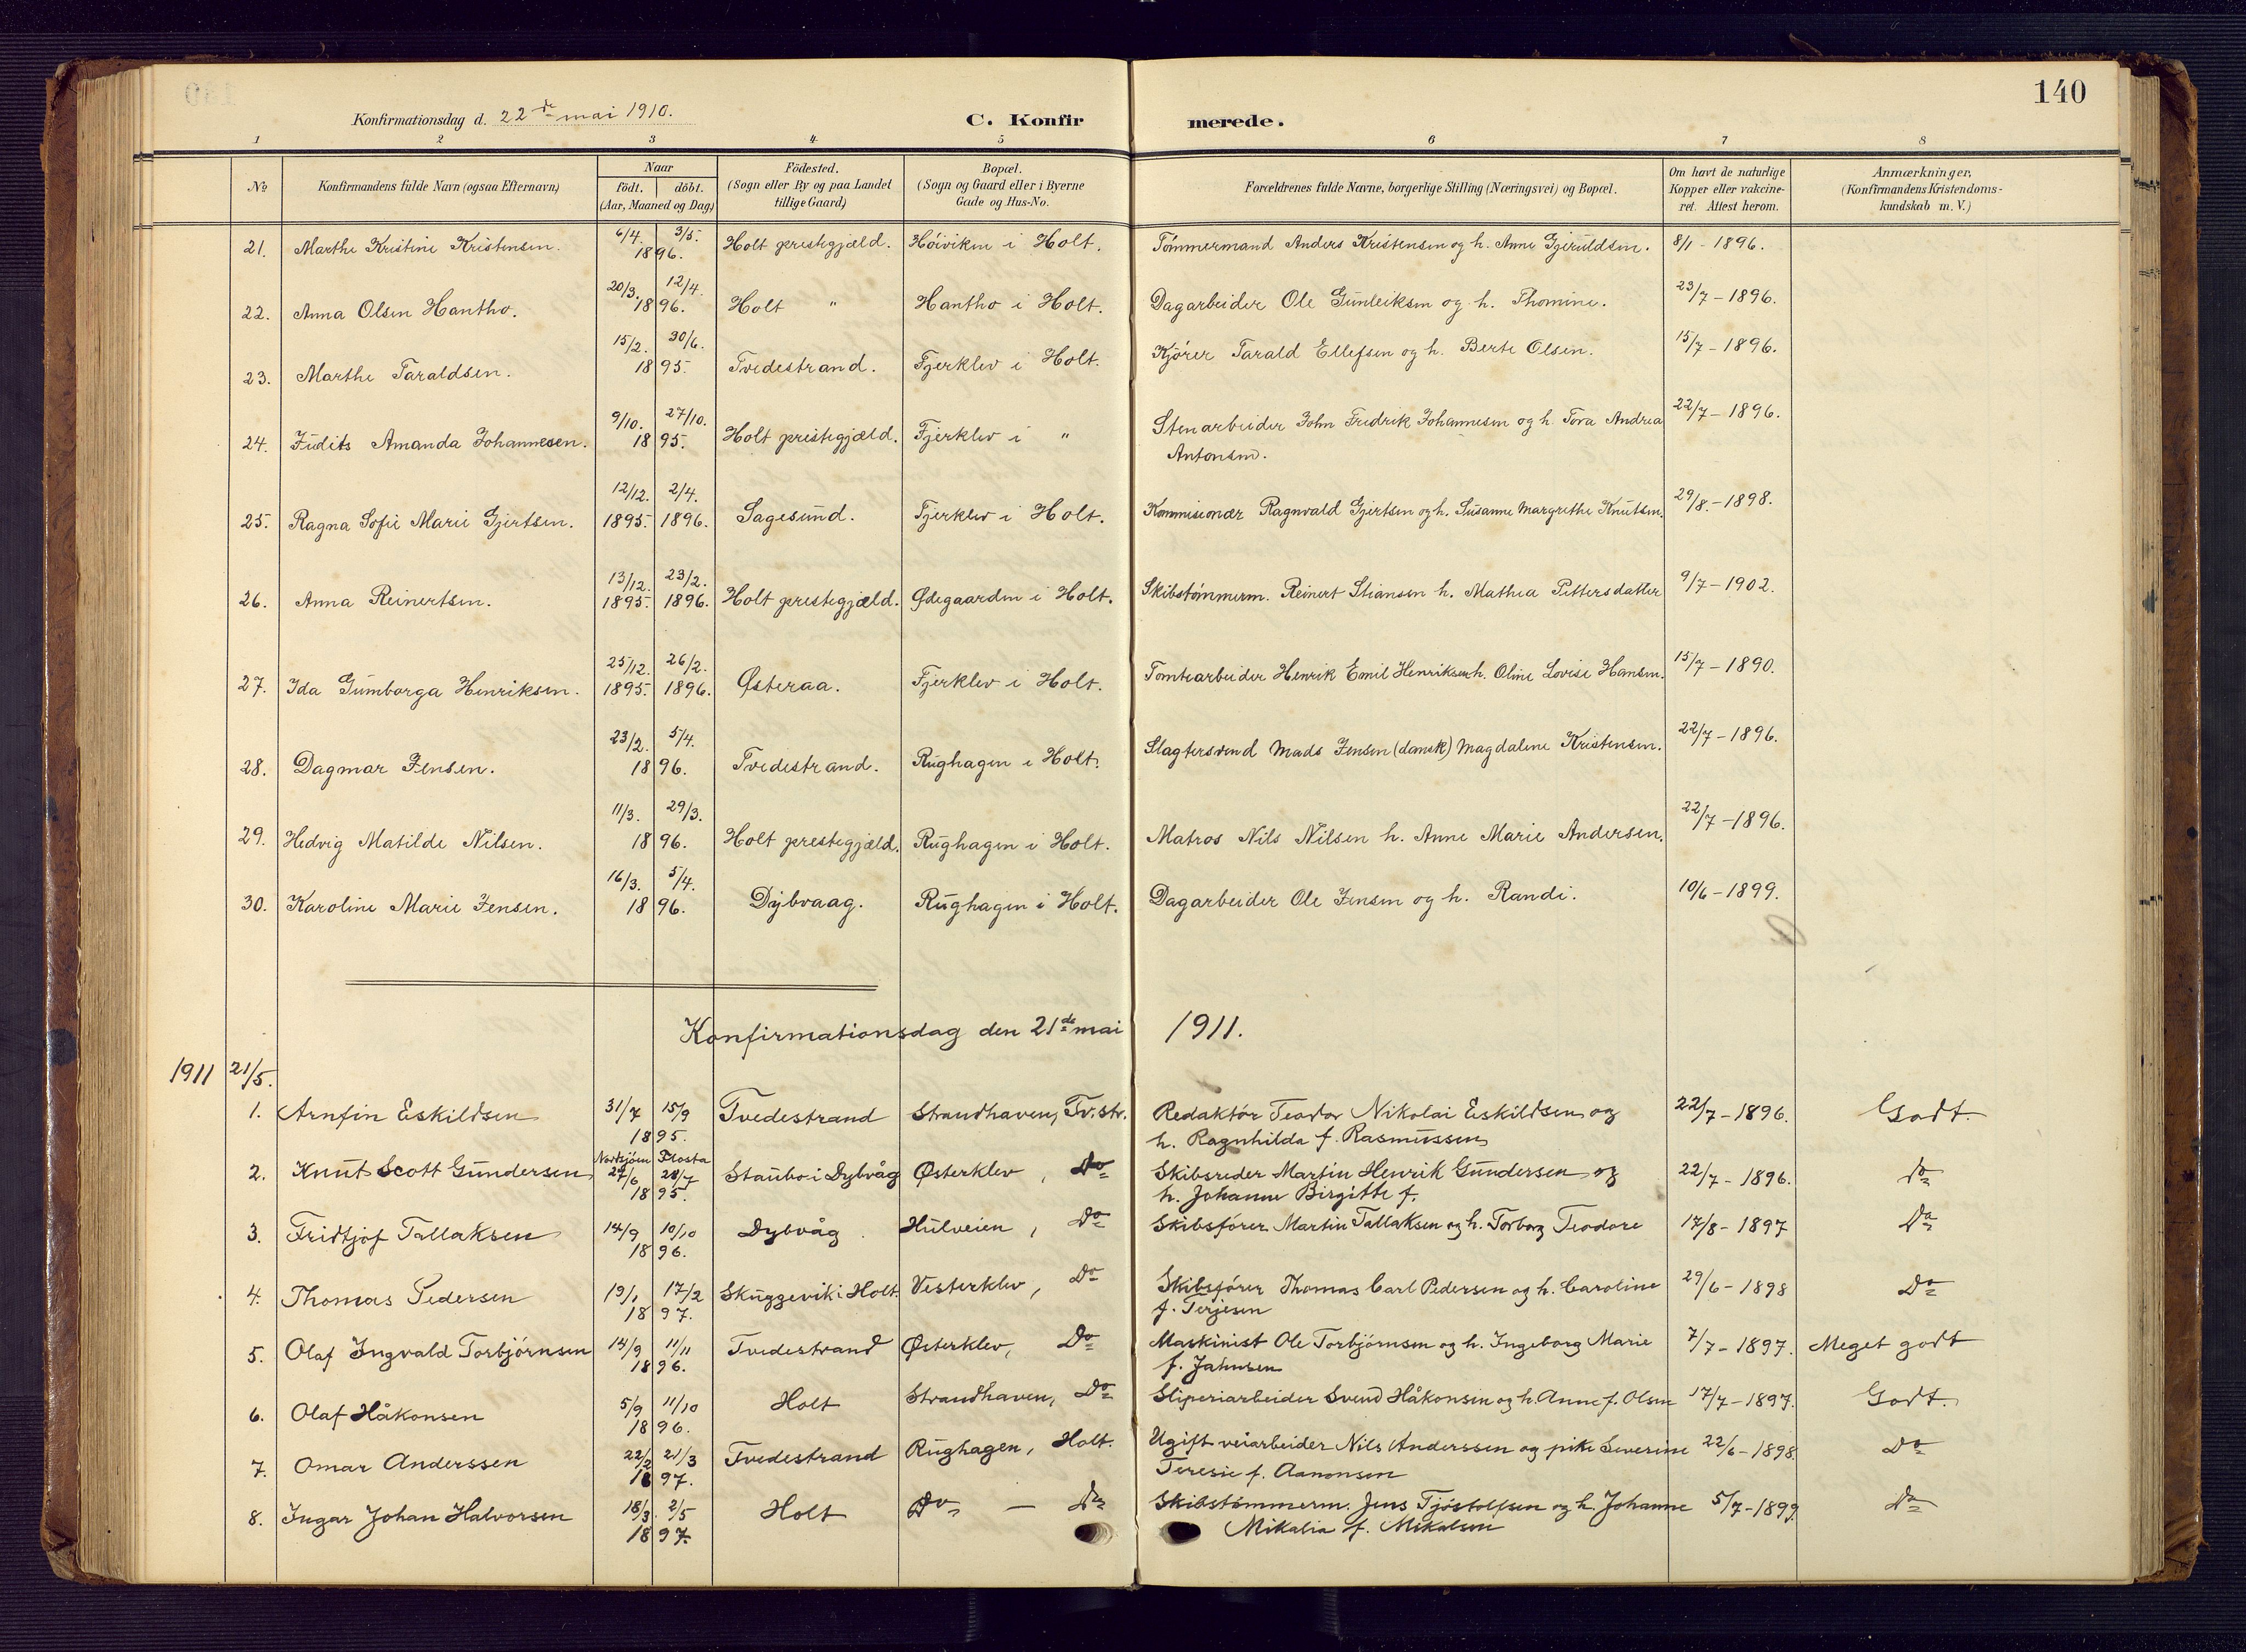 140
Konfirmationsdag d. 22de mai 1910.
C. Konfirmerede.
1 2 3 4 5 6 7 8
No
Konfirmandens fulde Navn (ogsaa Efternavn)
Naar
födt. döbt.
(Aar, Maaned og Dag)
Födested.
(Sogn eller By og paa Landet
tillige Gaard)
Bopæl.
(Sogn og Gaard eller i Byerne
Gade og Hus-No.
Forældrenes fulde Navne, borgerlige Stilling (Næringsvei) og Bopæl.
Om havt de naturlige
Kopper eller vakcine-
ret. Attest herom.
Anmærkninger,
(Konfirmandens Kristendoms-
kundskab m. V.)
21. Marthe Kristine Kristensen. 6/4. 3/5. 1896. Holt prestegjæld. Höiviken i Holt. Tömmermand Anders Kristensen og h. Anne Gjeruldsen. 8/1 - 1896.
22. Anna Olsen Hantho. 20/3. 12/4. 1896. Holt " Hantho i Holt. Dagarbeider Ole Gunleiksen og h. Thomine. 23/7 - 1896.
23. Marthe Taraldsen. 15/2. 30/6. 1895. Tvedestrand. Fjerklev i Holt. Kjörer Tarald Ellefsen og h. Berte Olsen. 15/7 - 1896.
24. Judits Amanda Johannesen. 9/10. 27/10. 1895. Holt prestegjæld. Fjerklev i " Stenarbeider John Fredrik Johannesen og h. Tora Andrea 22/7 - 1896.
Antonsen.
25. Ragna Sofie Marie Gjertsen. 12/12. 1895. 2/4. 1896. Sagesund. Fjerklev i Holt. Kommisionær Ragnvald Gjertsen og h. Susanne Margrethe Knutsen. 29/8. - 1898.
26. Anna Reinertsen. 13/12. 1895. 23/2. 1896. Holt prestegjæld. Ødegaarden i Holt. Skibstömmerm. Reinert Stiansen h. Mathea Pettersdatter 9/7 - 1902.
27. Ida Gumborga Henriksen. 25/12. 1895. 26/2. 1896. Østeraa. Fjerklev i Holt. Tomtearbeider Henrik Emil Henriksen h. Oline Lovise Hansen. 15/7 - 1890.
28. Dagmar Jensen. 23/2. 5/4. 1896. Tvedestrand. Rughagen i Holt. Slagtersvend Mads Jensen (dansk) Magdalene Kristensen. 22/7 - 1896.
29. Hedvig Matilde Nilsen. 11/3. 29/3. 1896. Holt prestegjæld. Rughagen i Holt. Matros Nils Nilsen h. Anne Marie Andersen. 22/7 - 1896.
30. Karoline Marie Jensen. 16/3. 5/4. 1896. Dybvaag. Rughagen i Holt. Dagarbeider Ole Jensen og h. Randi. 10/6 - 1899.
Konfirmationsdag den 21de mai 1911.
1911 21/5.
1. Arnfin Eskildsen 31/7 15/9 1895. Tvedestrand Strandhaven, Tv.str. Redaktör Teodor Nikolai Eskildsen og 22/7 - 1896. Godt.
h. Ragnhilda f. Rasmussen
2. Knut Scott Gundersen Nordsjöen 27/6 Flosta 28/7 1895. Staubo i Dybvåg Østerklev, Do Skibsreder Martin Henrik Gundersen og 22/7 - 1896. Do
h. Johanne Birgitte f.
3. Fridtjof Tallaksen 14/9 10/10 1896. Dybvåg. Hulveien, Do Skibsförer Martin Tallaksen og h. Torborg Teodore 17/8 - 1897 Do
4. Thomas Pedersen 19/1 17/2 1897. Skuggevik i Holt. Vesterklev, Do Skibsförer Thomas Carl Pedersen og h. Caroline 29/6 - 1898 Do
f. Terjesen
5. Olaf Ingvald Torbjörnsen 14/9 11/11 1896. Tvedestrand Østerklev, Do Maskinist Ole Torbjörnsen og h. Ingeborg Marie 7/7 - 1897. Meget godt
f. Jahnsen
6. Olaf Håkonsen 5/9 11/10 1896. Holt Strandhaven, Do Sliperiarbeider Svend Håkonsen og h. Anne f. Olsen 17/7 - 1897. Godt.
7. Omar Anderssen 22/2 21/3 1897. Tvedestrand Rughagen, Holt. Ugift veiarbeider Nils Anderssen og pike Severine 22/6 - 1898. Do
Teresie f. Aanonsen
8. Ingar Johan Halvorsen 18/3. 2/5 1897. Holt Do — Do Skibstömmerm. Jens Tjöstolfsen og h. Johanne 5/7 - 1899. Do
Mikalia f. Mikalsen